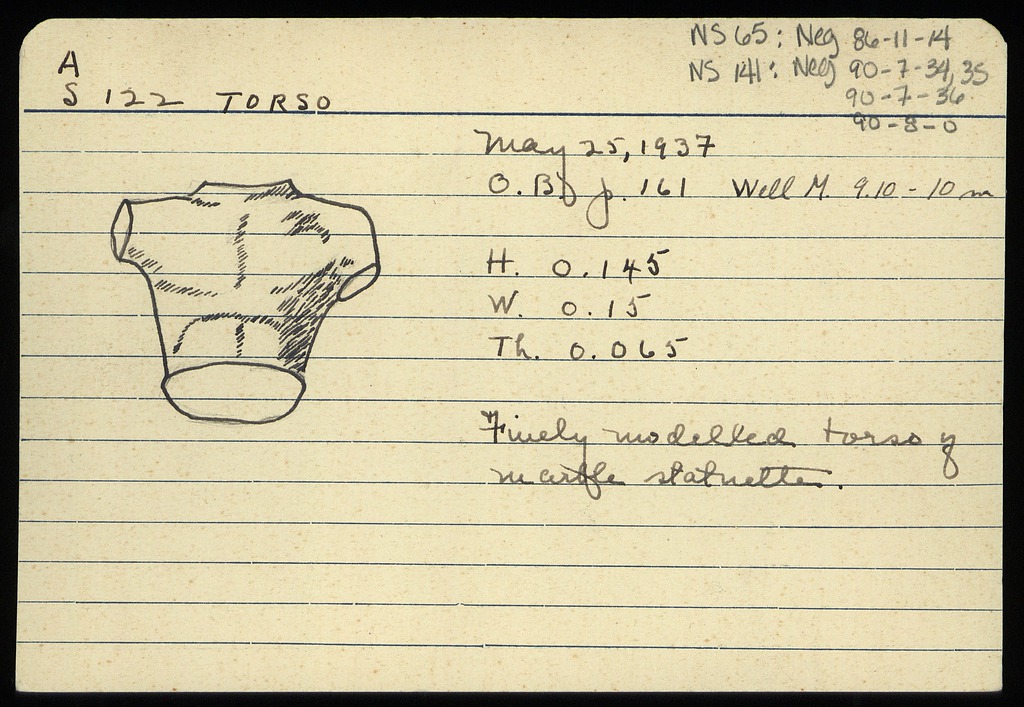 NS 65: Neg 86-11-14
NS 141: Neg 90-7-34, 35
90-7-36
90-8-0
A
S 122 TORSO
May 25, 1937
O.B. p. 161 Well M. 9.10 - 10 m
H. 0.145
W. 0.15
Th. 0.065
Finely modelled torso of
marble statuette.